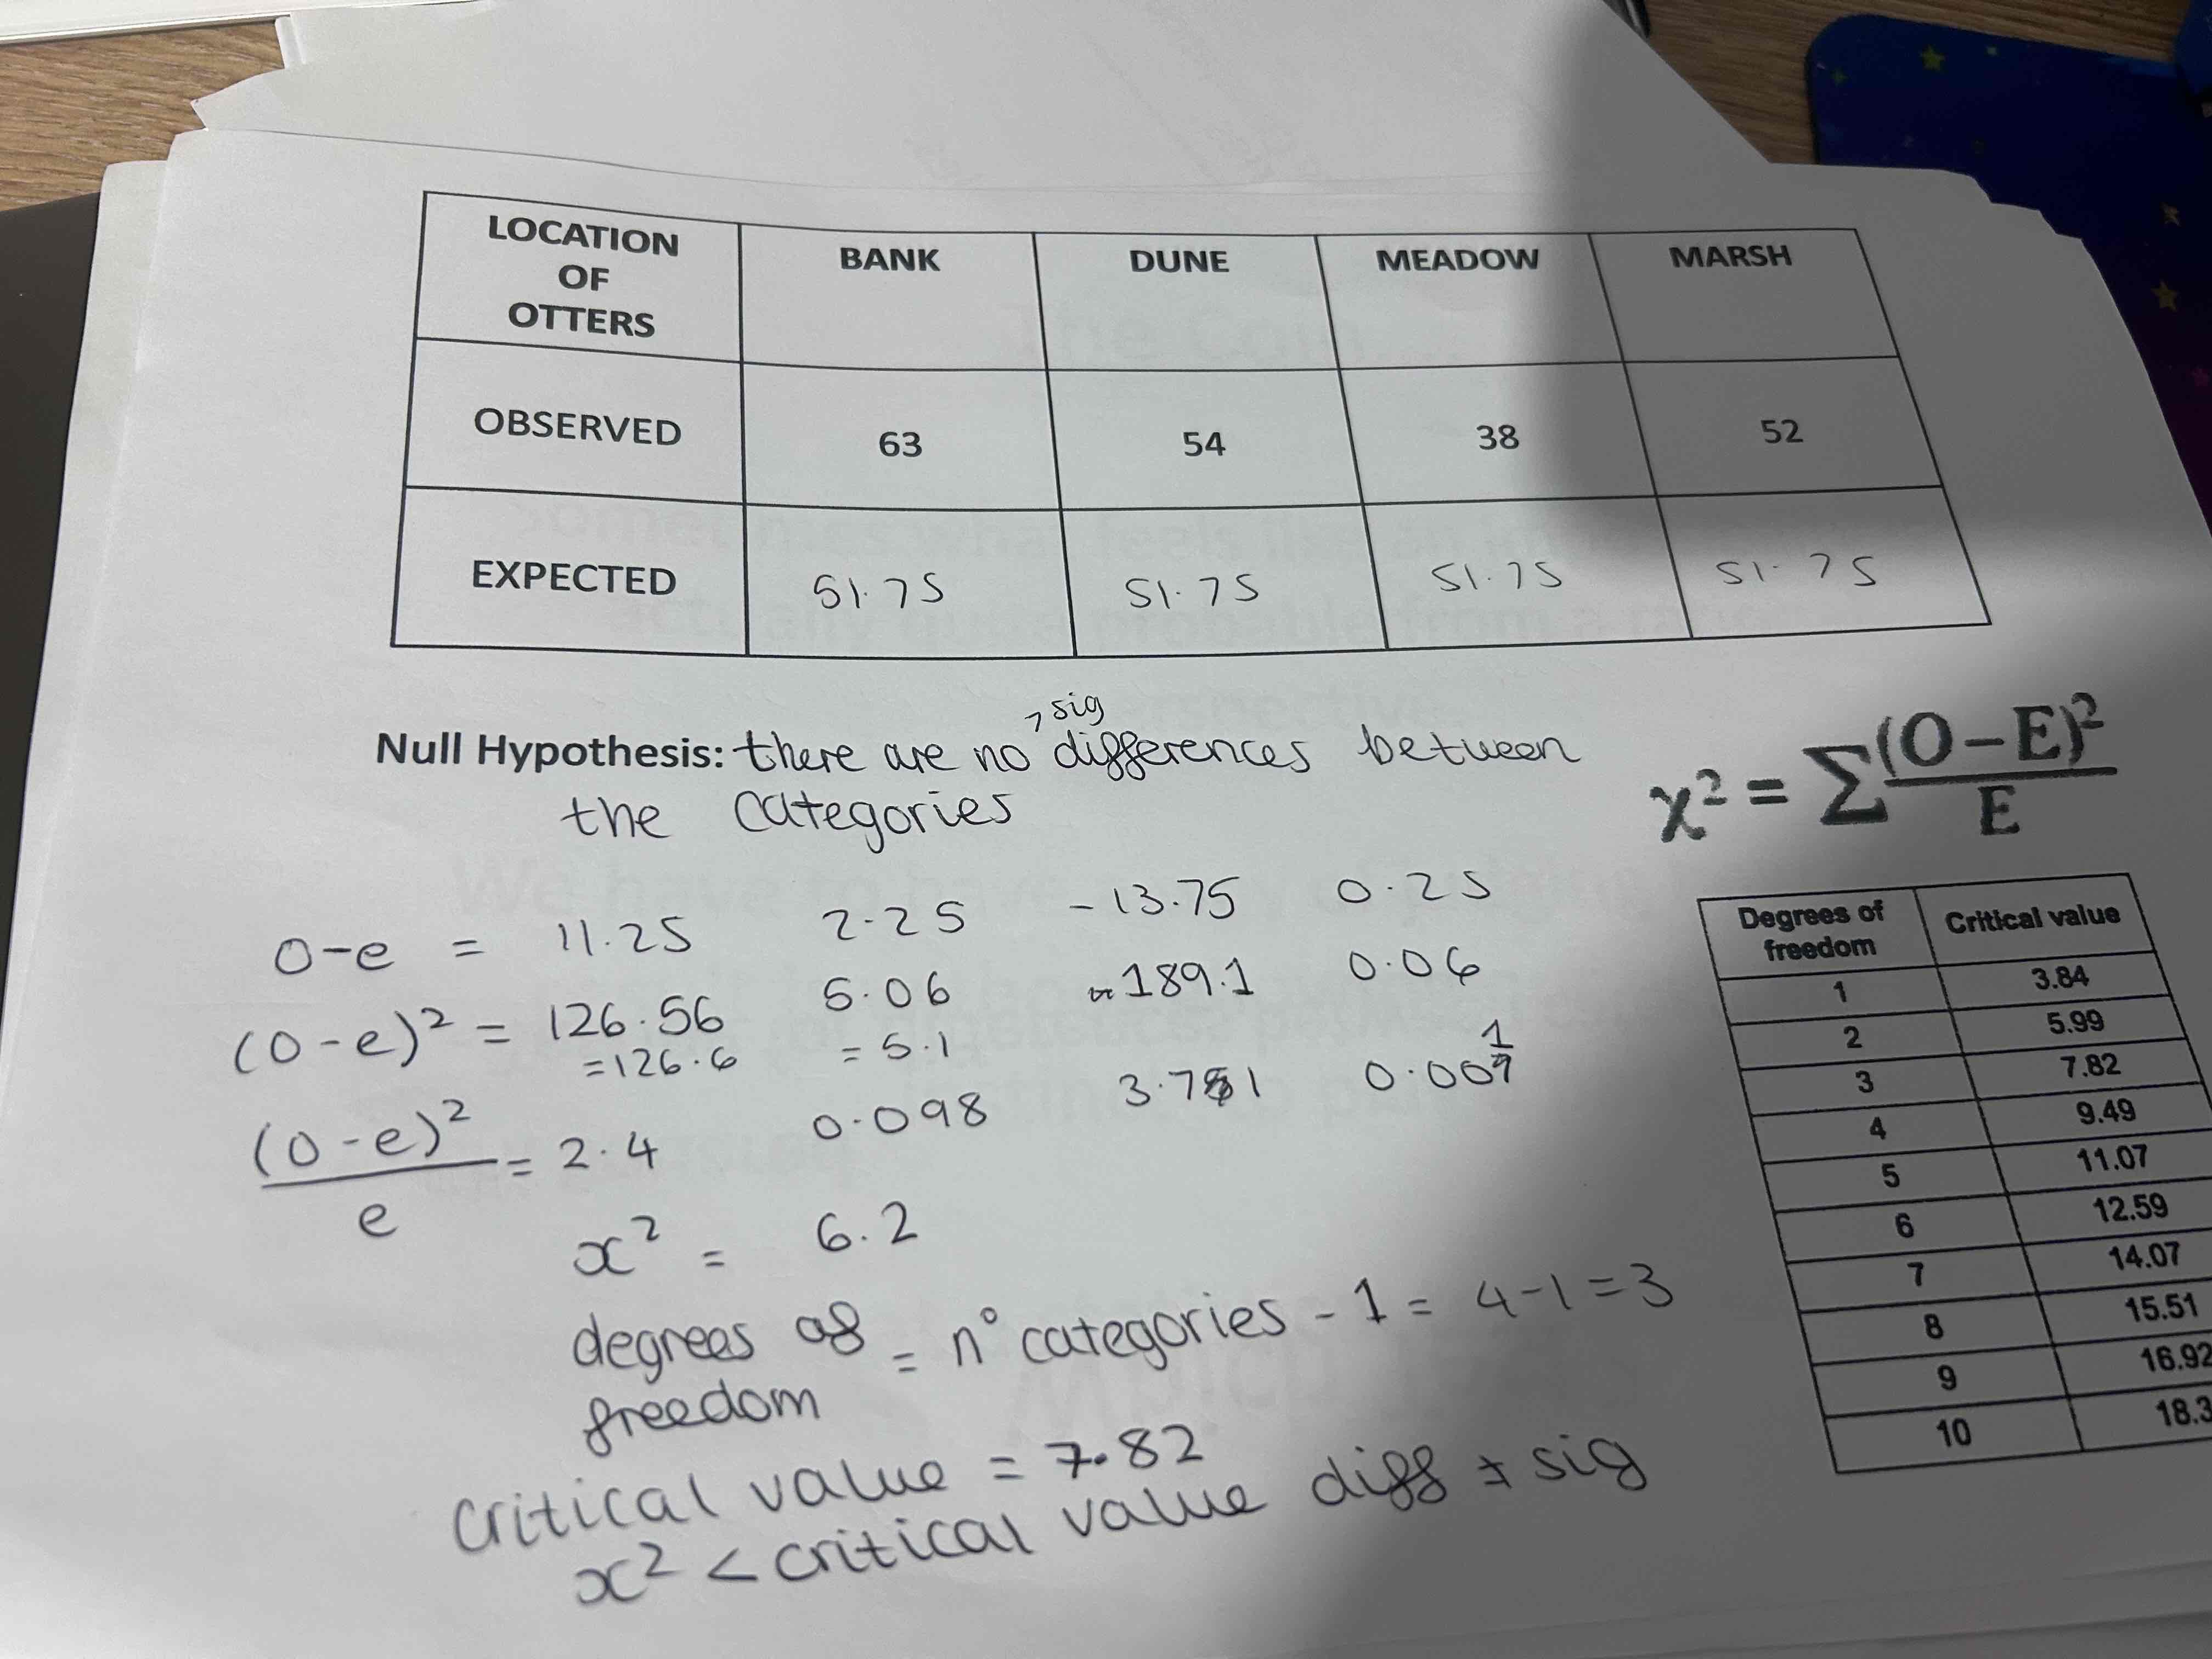 LOCATION OF OTTERS BANK DUNE MEADOW MARSH
OBSERVED 63 54 38 52
EXPECTED 51.75 51.75 51.75 51.75
Null Hypothesis: there are no sig differences between
the categories
χ² = Σ (O – E)² / E
o-e = 11.25 2.25 -13.75 0.25
(o-e)² = 126.56 5.06 189.1 0.06
= 126.6 = 5.1
(o-e)² / e = 2.4 0.098 3.71 0.001
x² = 6.2
degrees of freedom = n° categories - 1 = 4-1 = 3
critical value = 7.82
x² < critical value diff ≠ sig
Degrees of freedom Critical value
1 3.84
2 5.99
3 7.82
4 9.49
5 11.07
6 12.59
7 14.07
8 15.51
9 16.92
10 18.3